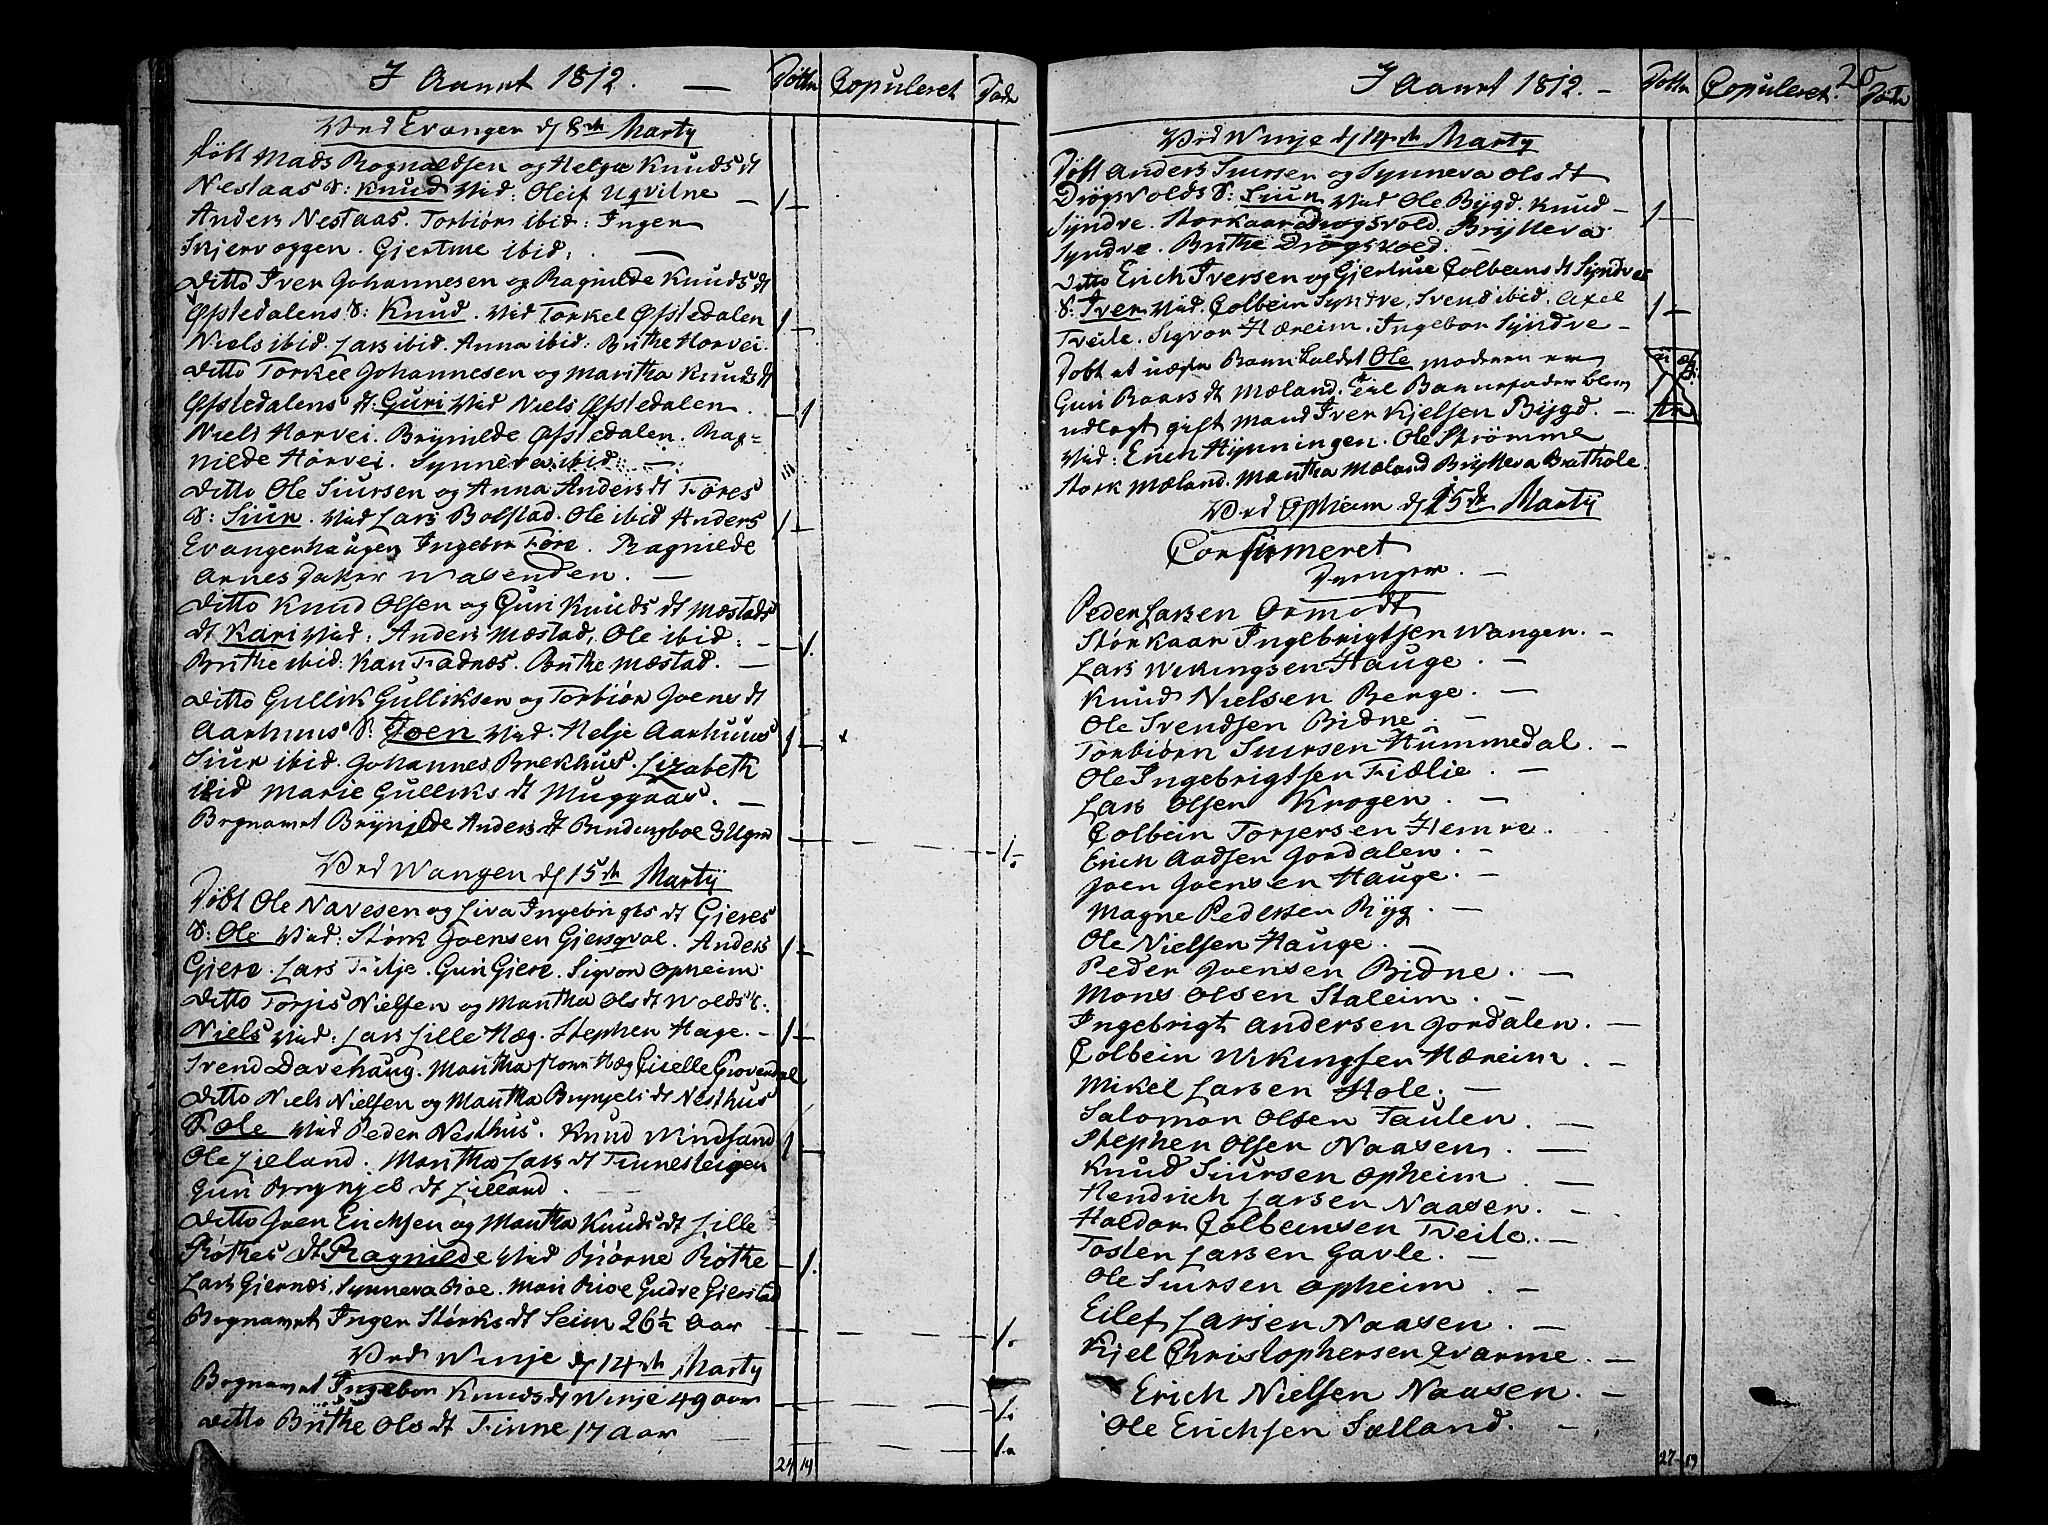 I Aaret 1812. — Døbte Copuleret Døde
Ved Evanger d 8de Marty
Døbt Mads Rognaldsen og Helga Knudsdt
Nestaas S: Knud Vid: Oleif Ugvitne — 1 —
Anders Nestaas. Torbiør ibid: Inger
Skjervæggen. Giertrue ibid: —
Ditto Iver Johannesen og Ragnilde Knudsdt
Øfstedalens S: Knud. Vid Torkel Øfstedalen 1 —
Niels ibid. Lars ibid. Anna ibid: Brithe Horvei.
Ditto Torkel Johannesen og Maritha Knudsdt
Øfstedalens dt: Guri Vid Niels Øfstedalen. — 1
Niels Horvei. Brynilde Øfstedalen. Rag=
nilde Horvei. Synneva ibid: —
Ditto Ole Siursen og Anna Andersdt Føres
S: Siur. Vid Lars Bolstad. Ole ibid Anders 1 —
Evangerhaugen Ingebor Føre. Ragnilde
Arnesdater Wasenden. —
Ditto Knud Olsen og Guri Knudsdt Mæstads
dt Kari Vid: Anders Mæstad. Ole ibid: — 1.
Brithe ibid: Kari Fadnæs. Brithe Mæstad. —
Ditto Gullik Gulliksen og Torbiør Joensdt
Aarhuus S: Joen Vid: Helje Aarhuus 1 —
Siur ibid. Johannes Brekhus. Lizabeth
ibid Marie Gulliksdt Muggaas. —
Begravet Brynilde Andersdt — — — 1.
Ved Wangen d 15de Marty
Døbt Ole Navesen og Liva Ingebrigtsdt Gieres
S: Ole Vid: Størk Joensen Giersqval. Anders 1 —
Giere. Lars Tilje. Guri Giere. Sigvor Opheim.
Ditto Torjis Nielsen og Maritha Olsdt Wolds S.
Niels Vid: Lars Lille Hæg. Stephen Hage. — 1 —
Svend Davehaug. Maritha Hæg
Ditto Niels Nielsen og Maritha Brynjelsdt Nesthus
S: Ole Vid Peder Nesthus. Knud 1 —
Ole Lieland. Maritha Larsdt Finnesteigen
Guri Brynjelsdt Lilland.
Ditto Joen Erichsen og Maritha Knudsdt Lille
Røthes dt Ragnilde Vid Biørne Røthe — 1.
Lars Giernæs, Synneva Roe. Mari Roe Gudve Gierstad
Begravet Inger Størksdt Seim 26½ Aar — — — 1.
Ved Winje d 14de Marty
Begravet Ingebor Knudsdt Winje 49 aar — — — 1.
Ditto Brithe Olsdt Finne 17 Aar — — — 1.
24 19
I Aaret 1812. — Døbte Copuleret. 25 Døde
Ved Winje d 14de Marty
Døbt Anders Siursen og Synneva Olsdt
Drøgsvolds S: Siur Vid Ole Bygd. Knud — 1 —
Syndve. Storkaar Drøgsvold. Brytteva
Syndve. Brithe Drøgsvold. —
Ditto Erich Iversen og Giertrue Colbeinsdt Syndves
S: Iver Vid. Colbein Syndve, Svend ibid. Axel 1 —
Tveite. Sigvor Hæreim. Ingebor Syndve —
Døbt et uægte Barn kaldet Ole moderen er
Guri Roarsdt Mæland. Til Barnefader blev
udlagt gift mand Iver Kjelsen Bygd. —
Vid: Erich Hynningen. Ole Strømme
Størk Mæland. Maritha Mæland Brytteva Brathole.
Ved Opheim d 15de Marty
Confirmeret
Drenger. —
Peder Larsen Ormodt
Størkaar Ingebrigtsen Wangen. —
Lars Wikingsen Hauge. —
Knud Nielsen Berge. —
Ole Svendsen Bidne. —
Torbiørn Siursen Hummedal. —
Ole Ingebrigtsen Fiælie. —
Lars Olsen Krogen. —
Colbein Torjersen Hemre.
Erich Aadsen Jordalen. —
Joen Joensen Hauge. —
Magne Pedersen Byg. —
Ole Nielsen Hauge. —
Peder Joensen Bidne. —
Mons Olsen Staleim. —
Ingebrigt Andersen Jordalen. —
Colbein Wikingsen Hæreim. —
Mikel Larsen Hole. —
Salomon Olsen Taulen. —
Stephen Olsen Naasen. —
Knud Siursen Opheim. —
Hendrich Larsen Naasen. —
Haldor Colbeinsen Tveite. —
Tosten Larsen Gavle. —
Ole Siursen Opheim. —
Eilef Larsen Naasen. —
Kjel Christophersen Qvarme. —
Erich Nielsen Naasen. —
Ole Erichsen Sælland. —
27 19